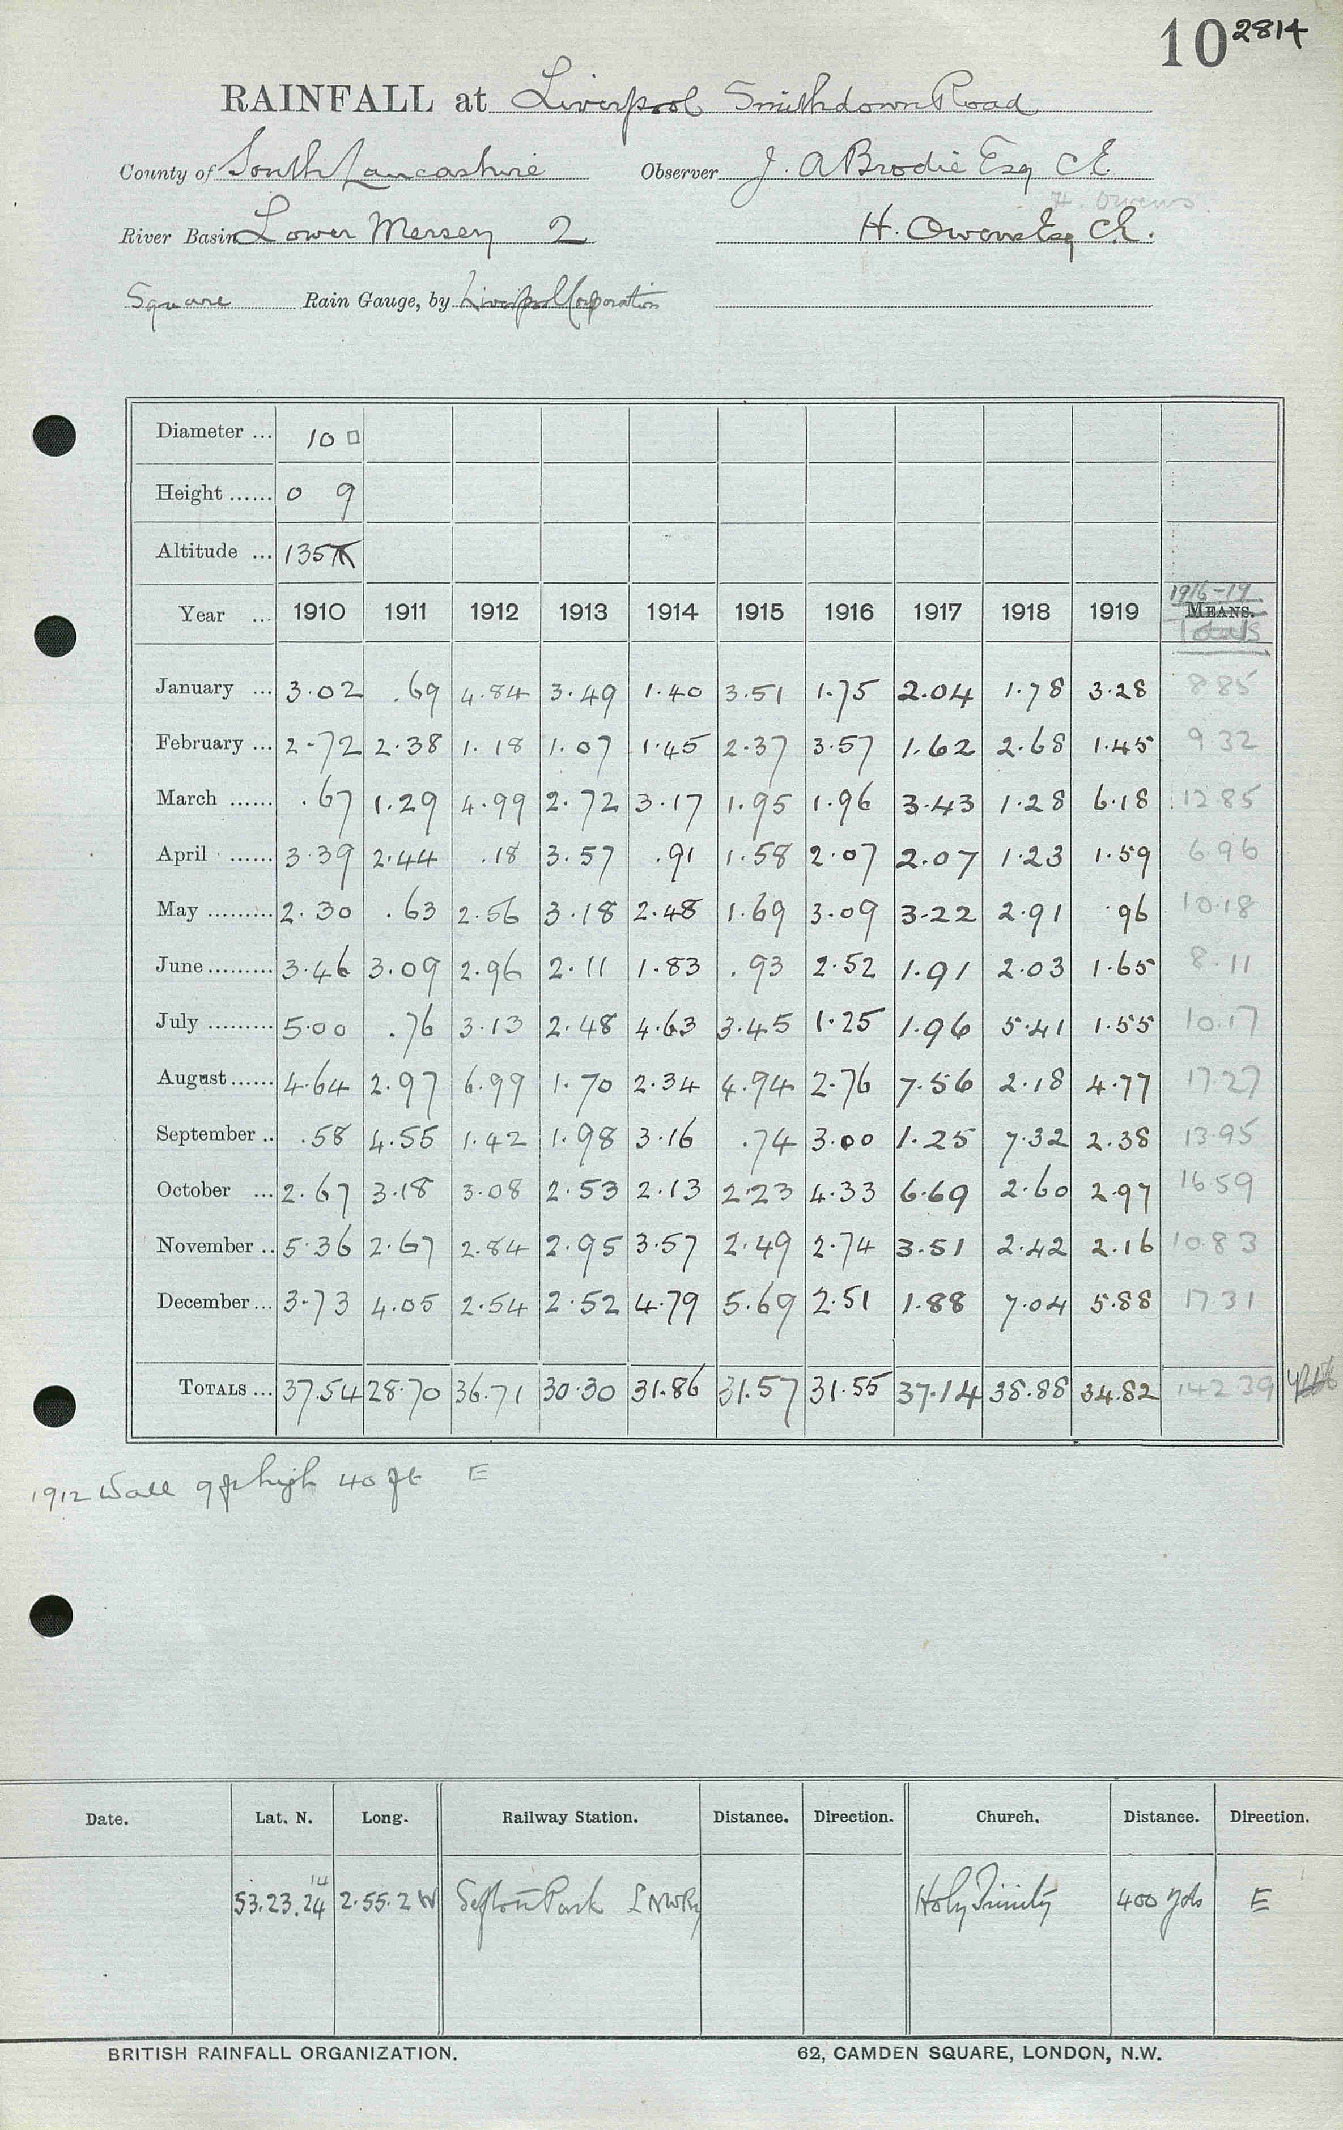 10 2814
RAINFALL at Liverpool Smithdown Road
County of South Lancashire Observer J. A Brodie Esq CE
H. Owens
River Basin Lower Mersey 2 H. Owens Esq CE.
Square Rain Gauge, by Liverpool Corporation
Diameter ... 10 □
Height ...... 0 9
Altitude ... 135
1916-19
Year ... 1910 1911 1912 1913 1914 1915 1916 1917 1918 1919 MEANS.
Totals
January ... 3.02 .69 4.84 3.49 1.40 3.51 1.75 2.04 1.78 3.28 8.85
February ... 2.72 2.38 1.18 1.07 1.45 2.37 3.57 1.62 2.68 1.45 9 32
March ...... .67 1.29 4.99 2.72 3.17 1.95 1.96 3.43 1.28 6.18 12 85
April ...... 3.39 2.44 .18 3.57 .91 1.58 2.07 2.07 1.23 1.59 6.96
May ......... 2.30 .63 2.56 3.18 2.48 1.69 3.09 3.22 2.91 .96 10.18
June ......... 3.46 3.09 2.96 2.11 1.83 .93 2.52 1.91 2.03 1.65 8.11
July ......... 5.00 .76 3.13 2.48 4.63 3.45 1.25 1.96 5.41 1.55 10.17
August ...... 4.64 2.97 6.99 1.70 2.34 4.94 2.76 7.56 2.18 4.77 17.27
September .. .58 4.55 1.42 1.98 3.16 .74 3.00 1.25 7.32 2.38 13.95
October ... 2.67 3.18 3.08 2.53 2.13 2.23 4.33 6.69 2.60 2.97 16.59
November .. 5.36 2.67 2.84 2.95 3.57 2.49 2.74 3.51 2.42 2.16 10.83
December ... 3.73 4.05 2.54 2.52 4.79 5.69 2.51 1.88 7.04 5.88 17.31
TOTALS ... 37.54 28.70 36.71 30.30 31.86 31.57 31.55 37.14 38.88 34.82 142 39
1912 Wall 9 ft high 40 ft E
Date. Lat. N. Long. Railway Station. Distance. Direction. Church. Distance. Direction.
14
53.23.24 2.55.2 W Sefton Park LNWRy Holy Trinity 400 yds E
BRITISH RAINFALL ORGANIZATION. 62, CAMDEN SQUARE, LONDON, N.W.